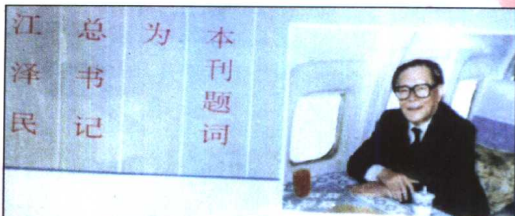 江泽民
总书记
为
本刊题词